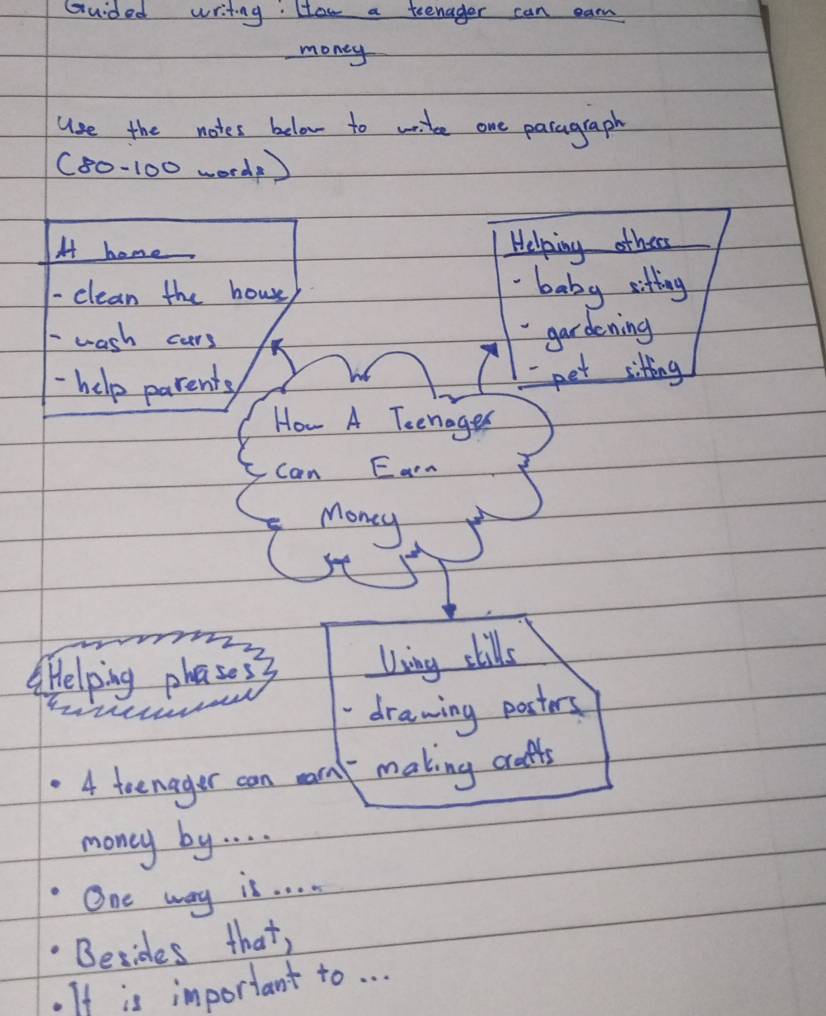 Guided writing: How a teenager can earn
money
Use the notes below to write one paragraph
(80-100 words)
At home
- clean the house
- wash cars
- help parents
Helping others
- baby sitting
- gardening
- pet sitting
How A Teenager
Can Earn
Money
Using skills
- drawing posters
- making crafts
Helping phases
• A teenager can earn
money by....
• One way is....
• Besides that,
• It is important to ...